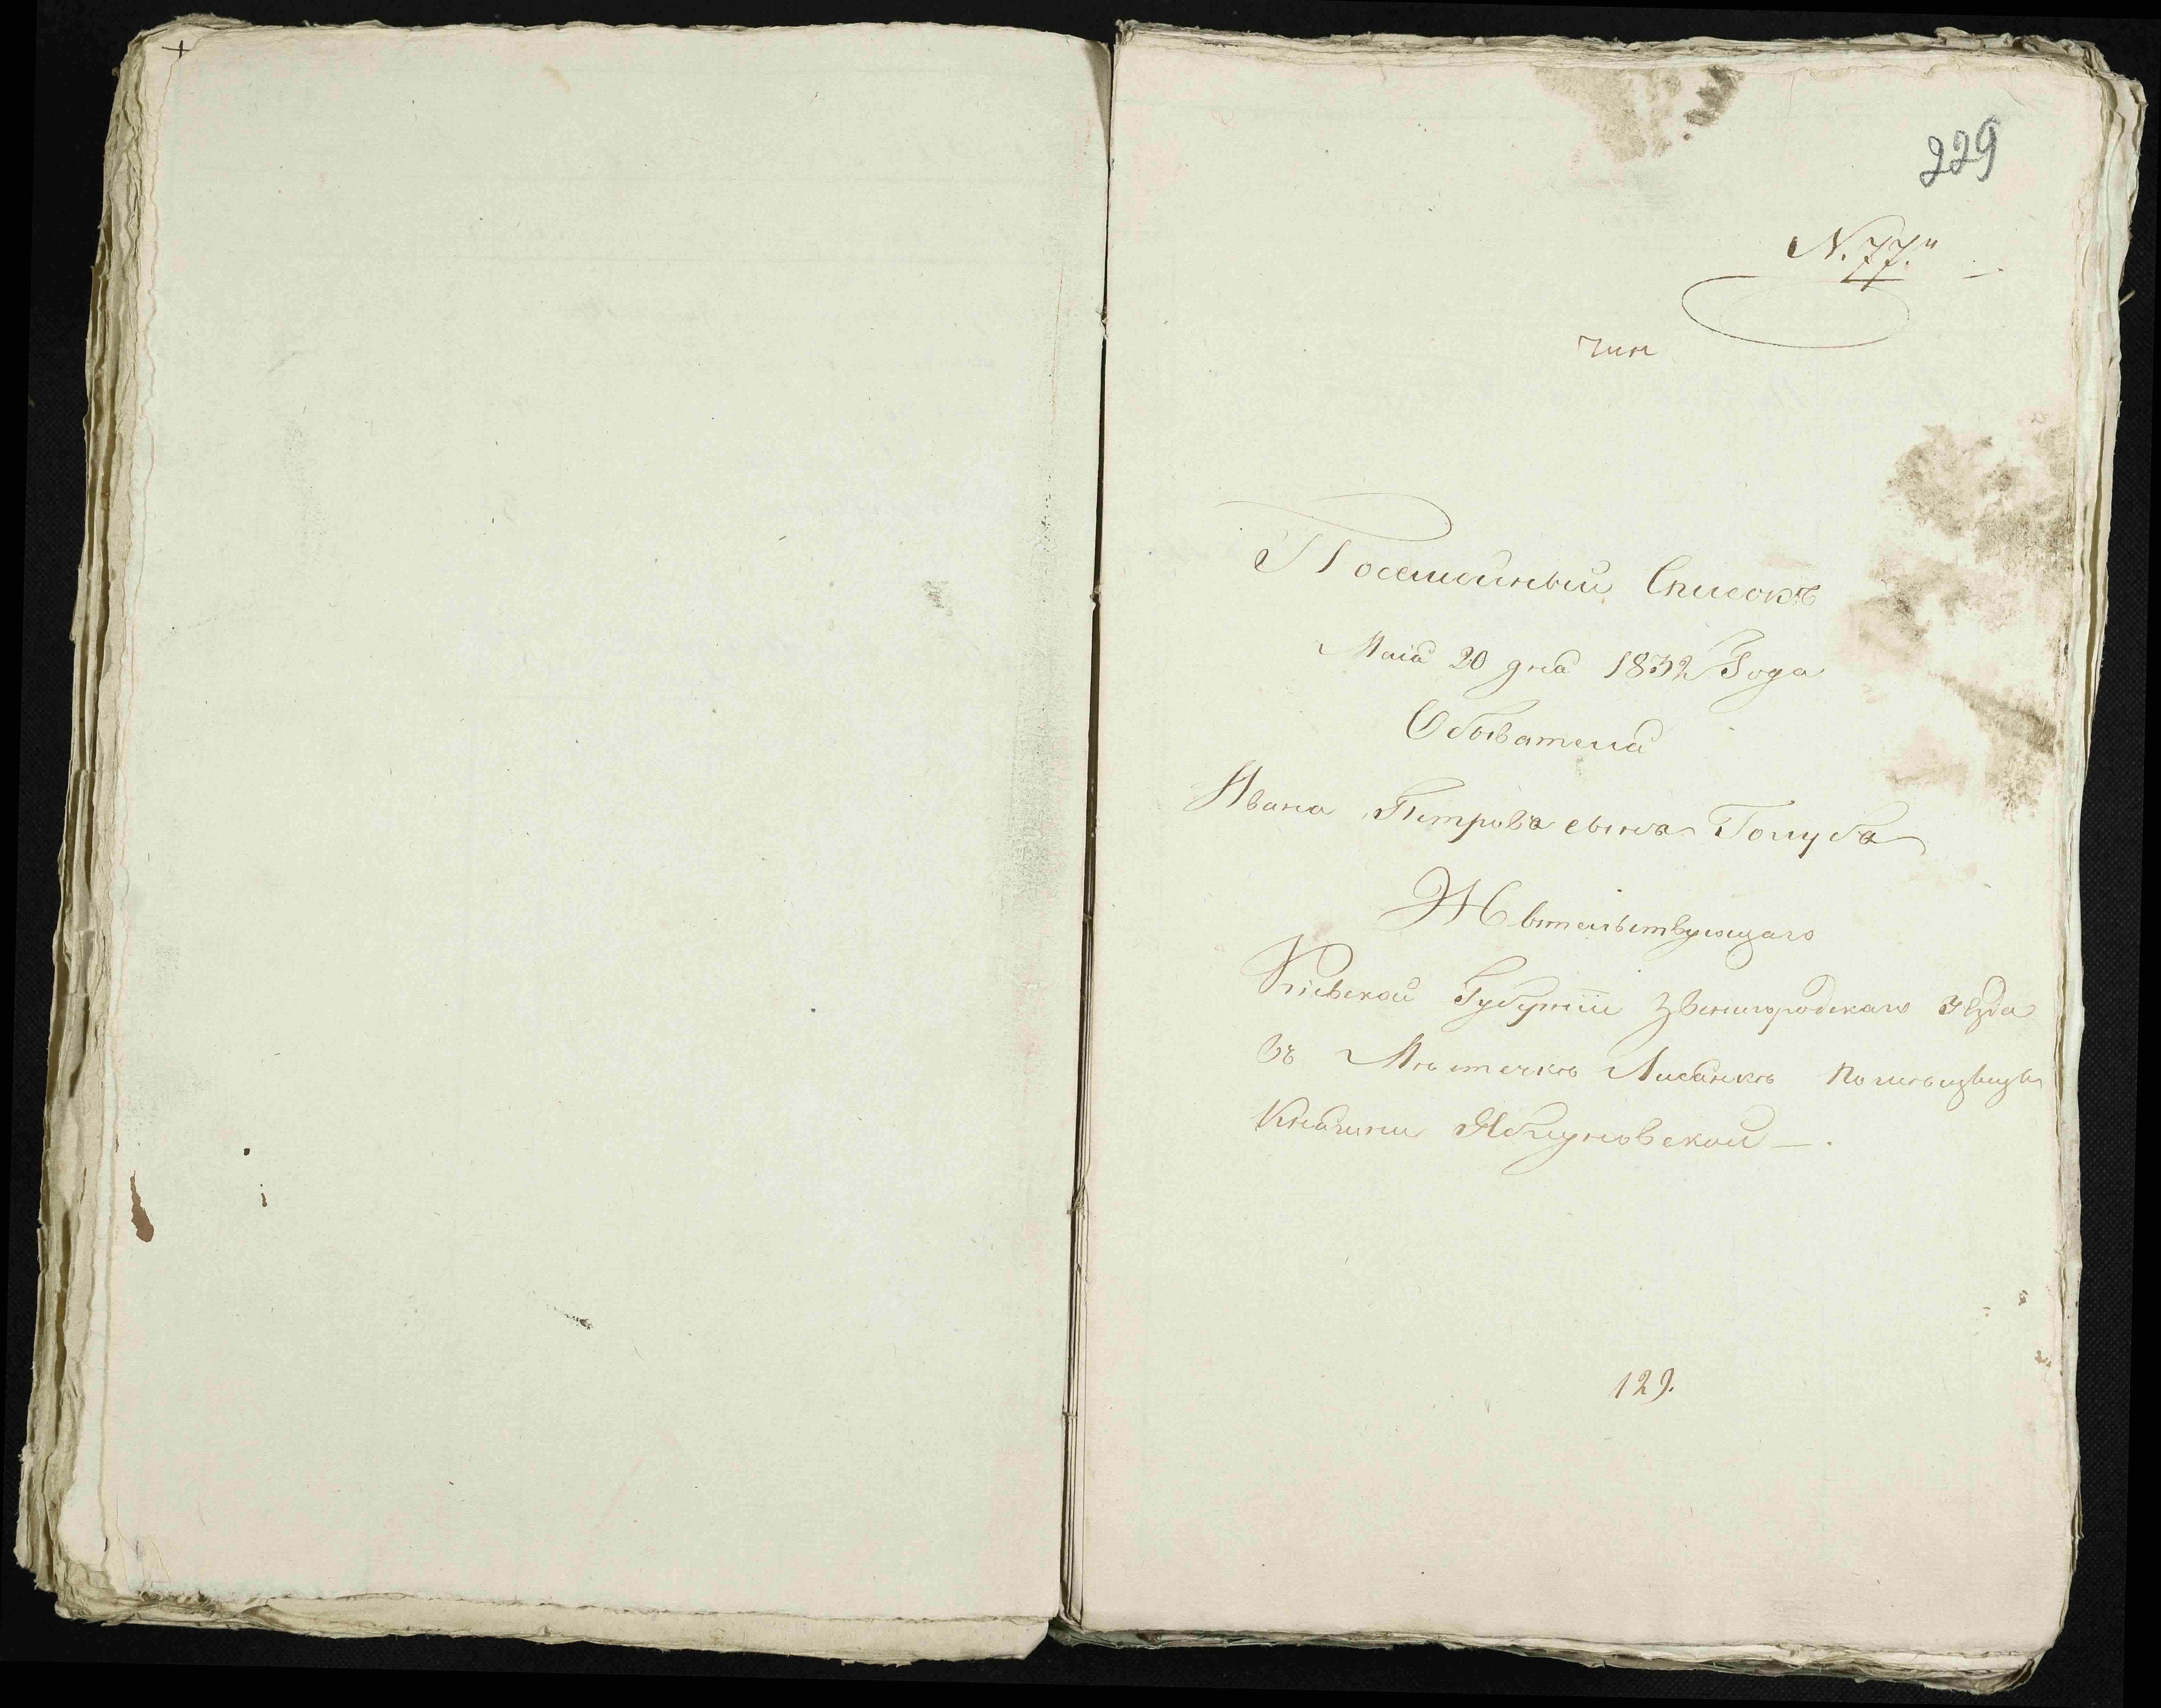 229
N. 77."
чин
Посемейный Списокъ
Маія 20 дня 1832 Года
Обывателя
Ивана Петрова сына Голуба
Жвтельствующаго
Кіевской Губерніи Звенигородскаго уѣзда
въ Мѣстечкѣ Лисянкѣ помѣщицы
Княгини Яблуновской —.
129.